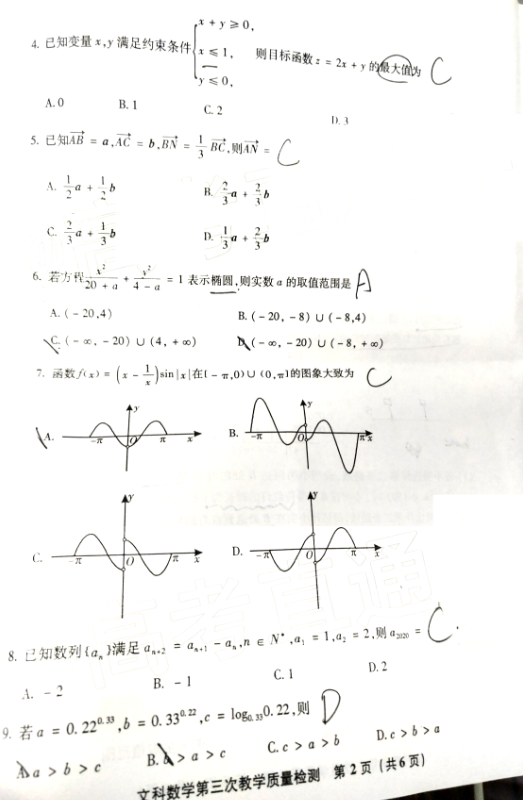 4. 已知变量 x,y 满足约束条件 { x + y ≥ 0, x ≤ 1, y ≤ 0, 则目标函数 z = 2x + y 的最大值为 C
A. 0 B. 1 C. 2 D. 3
5. 已知AB→ = a, AC→ = b, BN→ = 1/3 BC→, 则AN→ = C
A. 1/2 a + 1/2 b B. 2/3 a + 2/3 b
C. 2/3 a + 1/3 b D. 1/3 a + 2/3 b
6. 若方程 x²/(20 + a) + y²/(4 - a) = 1 表示椭圆,则实数 a 的取值范围是 A
A. ( - 20,4) B. ( - 20, - 8) ∪ ( - 8,4)
C. ( - ∞, - 20) ∪ (4, + ∞) D. ( - ∞, - 20) ∪ ( - 8, + ∞)
7. 函数 f(x) = (x - 1/x) sin|x| 在[ - π,0) ∪ (0,π]的图象大致为 C
A. y -π O π x B. y -π O π x
C. y -π O π x D. y -π O π x
8. 已知数列{aₙ}满足 aₙ₊₂ = aₙ₊₁ - aₙ, n ∈ N*, a₁ = 1, a₂ = 2, 则 a₂₀₂₀ = C.
A. - 2 B. - 1 C. 1 D. 2
9. 若 a = 0.22^0.33, b = 0.33^0.22, c = log₀.₃₃0.22, 则 D
A. a > b > c B. b > a > c C. c > a > b D. c > b > a
文科数学第三次教学质量检测 第 2 页 (共 6 页)